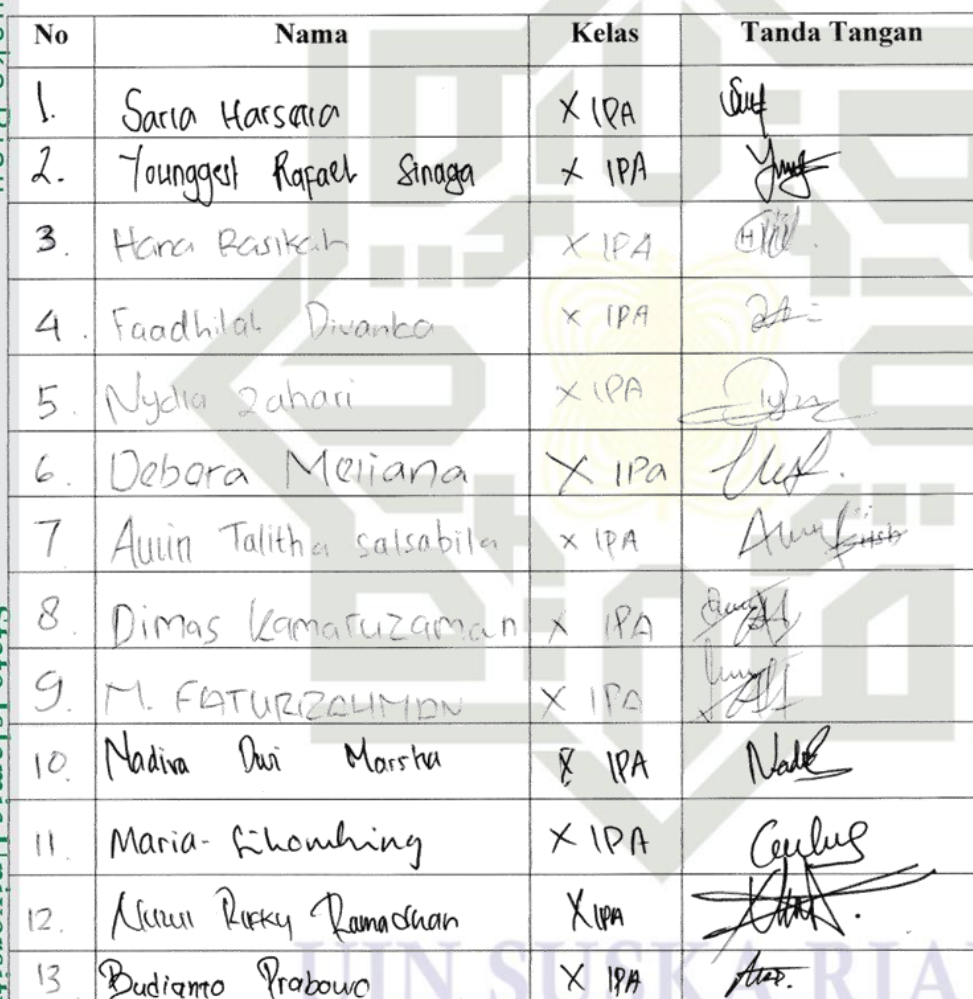 No Nama Kelas Tanda Tangan
1. Saria Harsaria X IPA
2. Younggest Rafael Sinaga X IPA
3. Hana Rasikah X IPA
4. Faadhilah Divanka X IPA
5. Nydia Zahari X IPA
6. Debora Meliana X IPa
7 Auiin Talitha salsabila X IPA
8. Dimas Kamaruzaman X IPA
9. M. FATURRZAHMAN X IPA
10. Nadiva Dwi Marsha X IPA
11. Maria Sihombing X IPA
12. Nurul Rifky Ramadhan X IPA
13 Budianto Prabowo X IPA
UIN SUSKA RIA